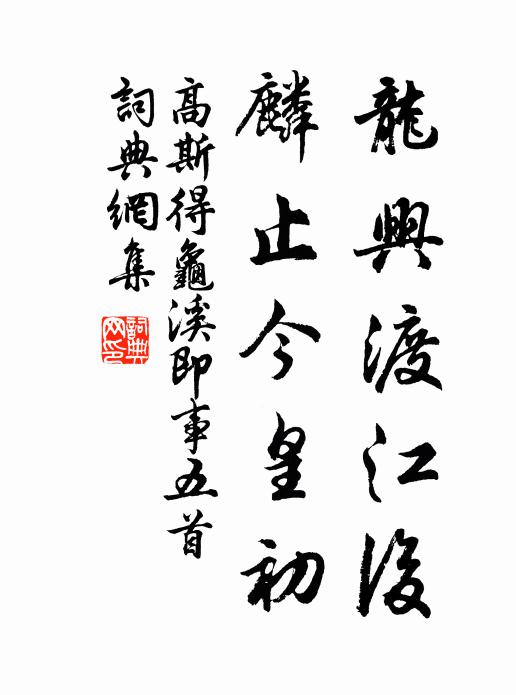 龍興渡江後
麟止今皇初
高斯得龜溪即事五首
詞典網集
詞典網印